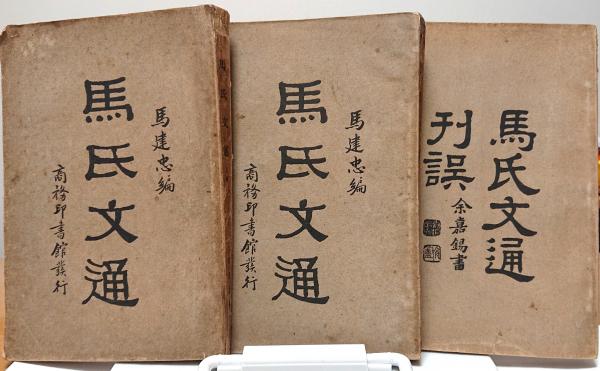 馬建忠編
馬氏文通
商務印書館發行
馬氏文通
馬建忠編
馬氏文通
商務印書館發行
馬氏文通
刊誤
余嘉錫書